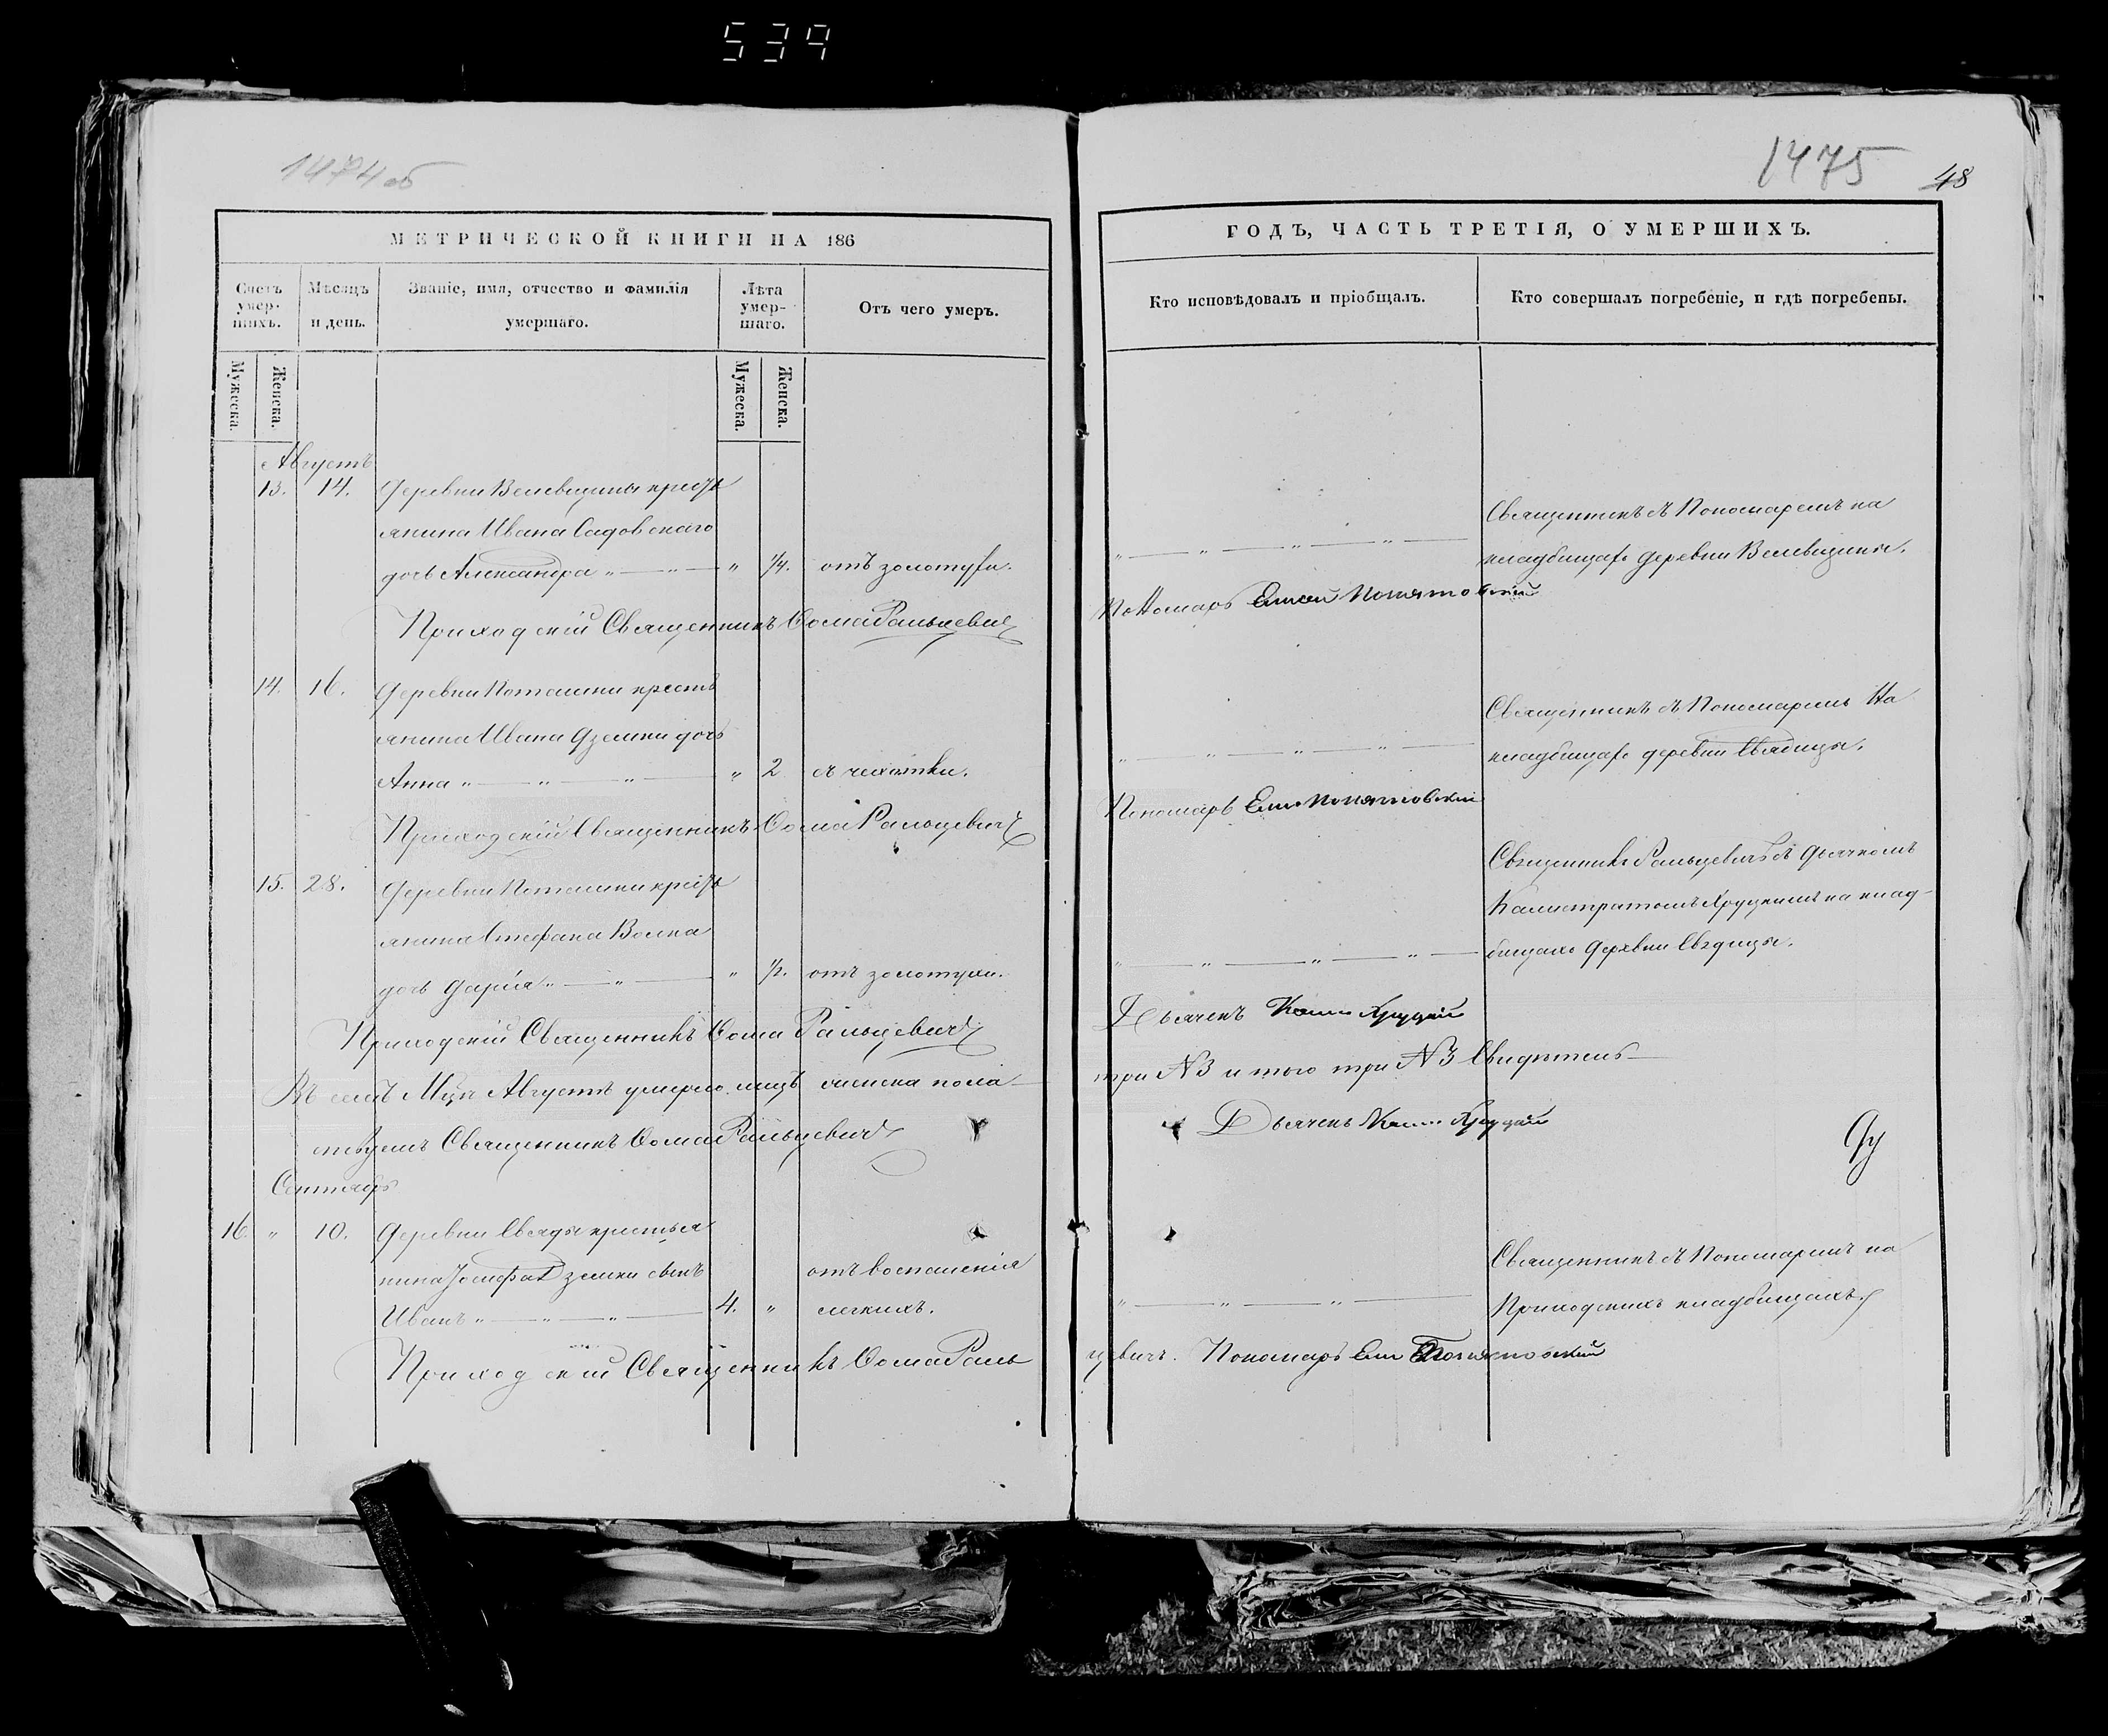 539
1474об
1475
48
МЕТРИЧЕСКОЙ КНИГИ НА 186
ГОДЪ, ЧАСТЬ ТРЕТІЯ, О УМЕРШИХЪ.
Счетъ умер-шихъ.
Мѣсяцъ и день.
Званіе, имя, отчество и фамилія умершаго.
Лѣта умер-шаго.
Отъ чего умеръ.
Кто исповѣдовалъ и пріобщалъ.
Кто совершалъ погребеніе, и гдѣ погребены.
Мужеска.
Женска.
Мужеска.
Женска.
Августъ
13. 14. Деревни Велевщины кресть
янина Ивана Садовскаго
дочь Александра " — " — " 1/4. отъ золотухи.
Священникъ съ Пономаремъ на
" — " — " — " —
кладбищахъ деревни Велевщины.
Приходскій Священникъ Ѳома Ральцевичъ
Пономарь Понятовскій
14. 16. Деревни Поташни кресть
янина Ивана Дземки дочь
Анна " — " — " — " 2 съ чихотки.
Священникъ съ Пономаремъ На
" — " — " — " —
кладбищахъ деревни Свядицы.
Приходскій Священникъ Ѳома Ральцевичъ
Пономарь Понятовскій
15. 28. Деревни Поташни кресть
янина Стефана Волка
дочь Дарія " — " — " 1/2. отъ золотухи.
Священникъ Ральцевичъ съ Дьячкомъ
Калистратомъ Хруцкимъ на клад-
" — " — " — " —
бищахъ деревни Свядицы.
Приходскій Священникъ Ѳома Ральцевичъ
Дьячекъ Хруцкій
Въ семъ Мцѣ Августѣ умерло лицъ женска пола
три №3 и того три №3 Свидѣтель—
ствуемъ Священникъ Ѳома Ральцевичъ
Дьячекъ Хруцкій
Сентябрь
16. " 10. Деревни Свяды крестья
нина Іосифа Дземки сынъ
Иванъ " — " — " — 4. "
отъ воспаленія
легкихъ.
Священникъ съ Пономаремъ на
" — " — " —
Приходскихъ кладбищахъ.
Приходскій Священникъ Ѳома Раль
цевичъ. Пономарь Понятовскій